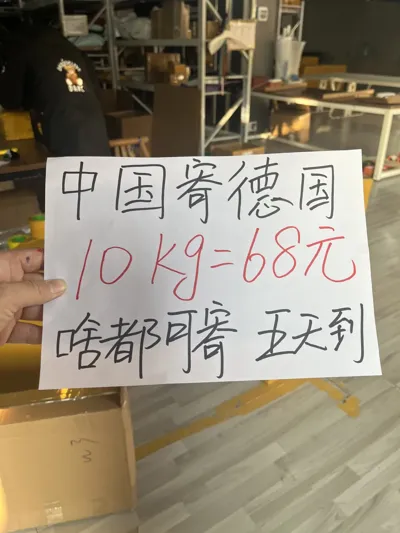 中国寄德国
10kg=68元
啥都可寄 五天到